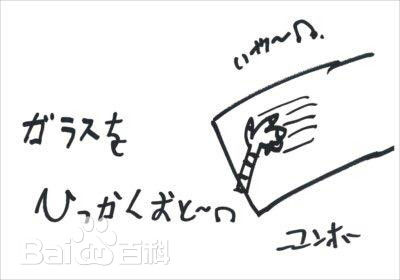 いや〜∩.
ガラスを
ひっかくおと〜∩
ユンホ
Bai百科